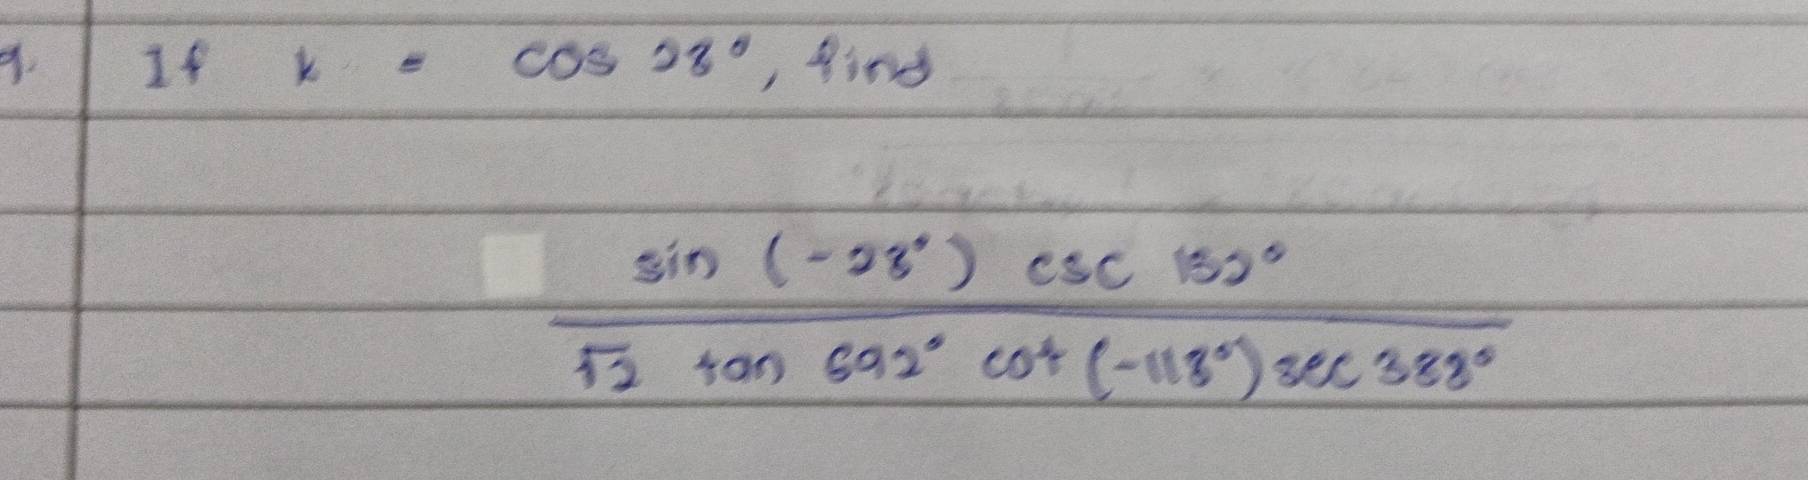 9. If k = cos 28°, find
sin (-28°) csc 152°
√2 tan 692° cot (-118°) sec 388°